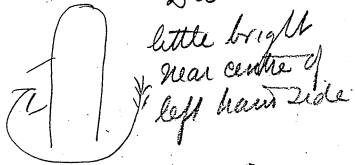 little bright
near centre of
left hand side